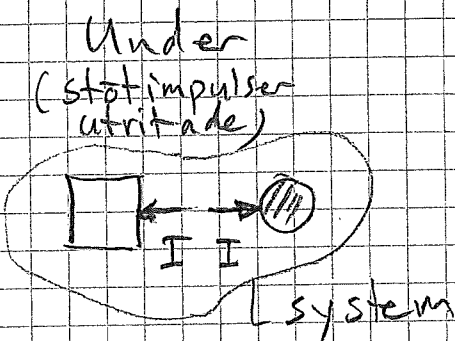 Under
(stötimpulser
utritade)
I I
system